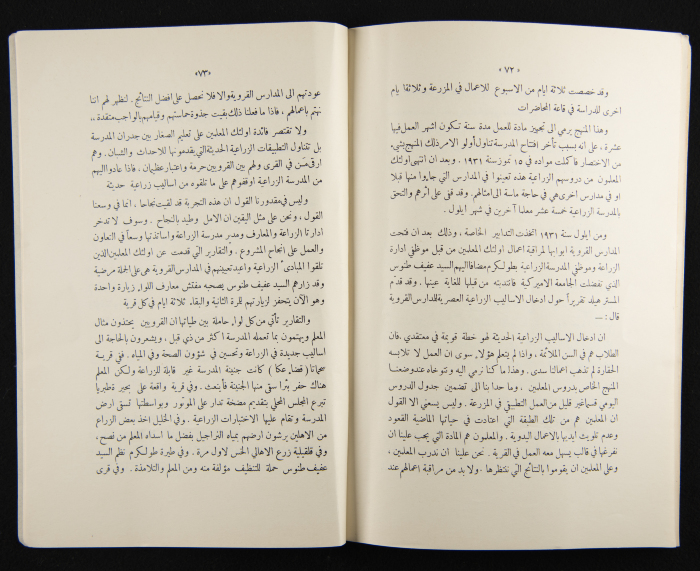 «٧٢»
وقد خصصت ثلاثة ايام من الاسبوع للاعمال في المزرعة وثلاثة ايام
اخرى للدراسة في قاعة المحاضرات
وهذا المنهج يرمي الى تجهيز مادة للعمل مدة سنة تكون اشهر العمل فيها
عشرة . على انه بسبب تأخر افتتاح المدرسة تناول أولو الامر ذلك المنهج بشيء
من الاختصار فاكملت مواده في ١٥ تموز سنة ١٩٣١ . وبعد ان انتهى اولئك
المعلمون من دروسهم الزراعية هذه تعينوا في المدارس التي جاءوا منها قبلا
او في مدارس اخرى هي في حاجة ماسة الى امثالهم . وقد قفى على اثرهم والتحق
بالمدرسة الزراعية خمسة عشر معلما آخرين في شهر ايلول .
ومن ايلول سنة ١٩٣١ اتخذت التدابير الخاصة ، وذلك بعد ان فتحت
المدارس القروية ابوابها لمراقبة اعمال اولئك المعلمين من قبل موظفي ادارة
الزراعة وموظفي المدرسة الزراعية بطولكرم مضافا اليهم السيد عفيف طنوس
الذي تفضلت الجامعة الاميركية فانتدبته من قبلها للغاية عينها . وقد قدم
المستر هيلد تقريراً حول ادخال الاساليب الزراعية العصرية للمدارس القروية
قال : ــ
ان ادخال الاساليب الزراعية الحديثة لهو خطة قويمة في معتقدي . فان
الطلاب هم في السن الملائمة ، واذا لم يتعلم هؤلاء سوى ان العمل لا تلابسه
الحقارة لم تذهب اعمالنا سدى . وهذا ما كنا نرمي اليه ونتوخاه عندوضعنا
المنهج الخاص بدروس المعلمين . وما حدا بنا الى تضمين جدول الدروس
اليومي قسما غير قليل من العمل التطبيقي في المزرعة . وليس يسعني الا القول
ان المعلمين هم من تلك الطبقة التي اعتادت في حياتها الماضية القعود
وعدم تلويث ايديها بالاعمال اليدوية . والمعلمون هم المادة التي يجب علينا ان
نفرغها في قالب يسهل معه العمل في القرية . نحن علينا ان ندرب المعلمين ،
وعلى المعلمين ان يقوموا بالنتائج التي ننتظرها . ولا بد من مراقبة اعمالهم عند
«٧٣»
عودتهم الى المدارس القروية والا فلا نحصل على افضل النتائج . لنظهر لهم اننا
نهتم باعمالهم ، فاذا ما فعلنا ذلك بقيت جذوة حماستهم وقيامهم بالواجب متقدة ..
ولا تقتصر فائدة اولئك المعلمين على تعليم الصغار بين جدران المدرسة
بل تتناول التطبيقات الزراعية الحديثة التي يقدمونها للاحداث والشبان . وهم
ارقى من في القرى ولهم بين القرويين حرمة واعتبار عظيمان . فاذا عادوا اليهم
من المدرسة الزراعية اوقفوهم على ما تلقوه من اساليب زراعية حديثة
وليس في مقدورنا القول ان هذه التجربة قد لقيت نجاحا . انما في وسعنا
القول ، ونحن على مثل اليقين ان الامل وطيد بالنجاح . وسوف لا تدخر
ادارتا الزراعة والمعارف ومدير مدرسة الزراعة واساتذتها وسعاً في التعاون
والعمل على انجاح المشروع . والتقارير التي قدمت عن اولئك المعلمين الذين
تلقوا المبادىء الزراعية واعيد تعيينهم في المدارس القروية هي على الجملة مرضية
وقد زارهم السيد عفيف طنوس يصحبه مفتش معارف اللواء زيارة واحدة
وهو الآن يتحفز لزيارتهم للمرة الثانية والبقاء ثلاثة ايام في كل قرية
والتقارير تأتي من كل لواء حاملة بين طياتها ان القرويين يحتذون مثال
المعلم ويهتمون بما تعمله المدرسة اكثر من ذي قبل . ويشعرون بالحاجة الى
اساليب جديدة في الزراعة وتحسين في شؤون الصحة وفي المياه . ففي قرية
سحماتا (قضاء عكا) كانت جنينة المدرسة غير قابلة للزراعة ولكن المعلم
هناك حفر بئراً سقى منها الجنينة فأينعت . وفي قرية واقعة على بحيرة طبريا
تبرع المجلس المحلي بتقديم مضخة تدار على الموتور وبواسطتها تسقى ارض
المدرسة وتقام عليها الاختبارات الزراعية . وفي الخليل اخذ بعض الزراع
من الاهلين يرشون ارضهم بمياه النراجيل بفضل ما اسداه المعلم من نصح ،
وفي قلقيلية زرع الاهالي الخس لاول مرة . وفي طيرة طولكرم نظم السيد
عفيف طنوس حملة للتنظيف مؤلفة منه ومن المعلم والتلامذة . وفي قرى